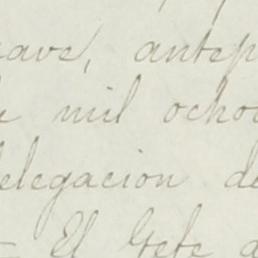 ave, antep
mil ocho
elegacion de
El Gefe d